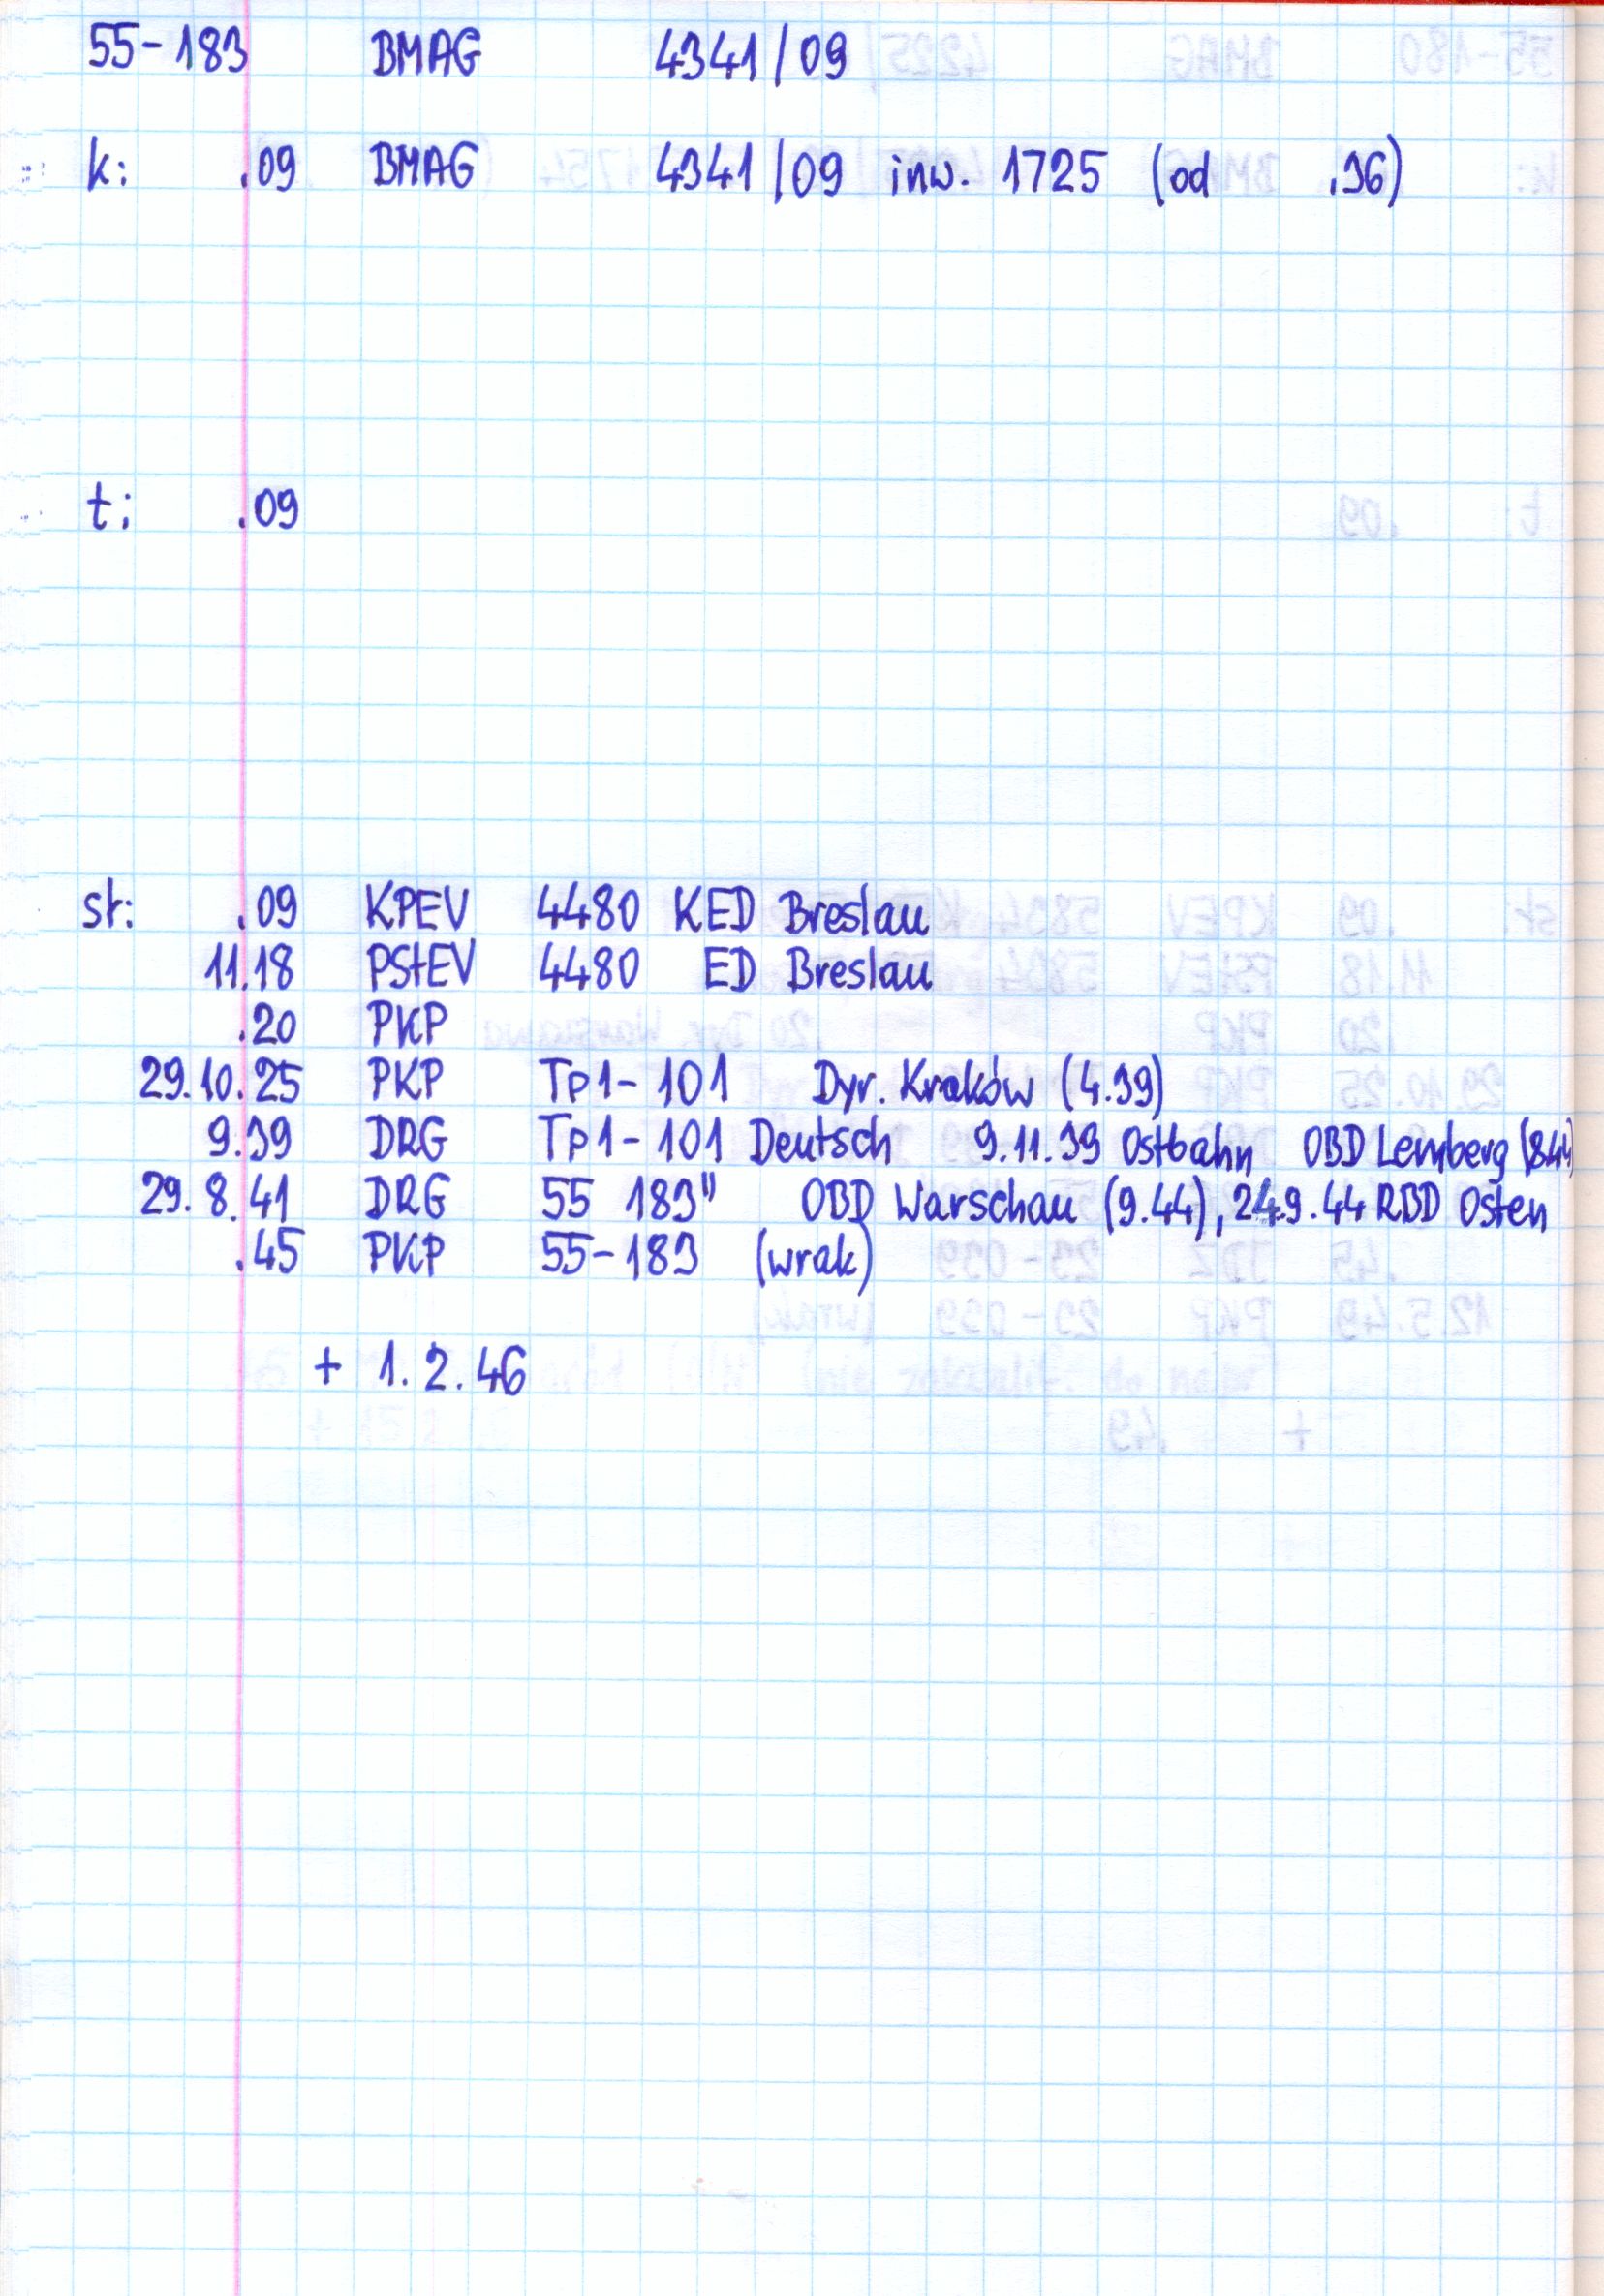 55-183 BMAG 4341/09
k: .09 BMAG 4341/09 inw. 1725 (od .36)
t: .09
st: .09 KPEV 4480 KED Breslau
11.18 PStEV 4480 ED Breslau
.20 PKP
29.10.25 PKP Tp1-101 Dyr. Kraków (4.39)
9.39 DRG Tp1-101 Deutsch 9.11.39 Ostbahn OBD Lemberg (8.41)
29.8.41 DRG 55 183" OBD Warschau (9.44), 24.9.44 RBD Osten
.45 PKP 55-183 (wrak)
+ 1.2.46